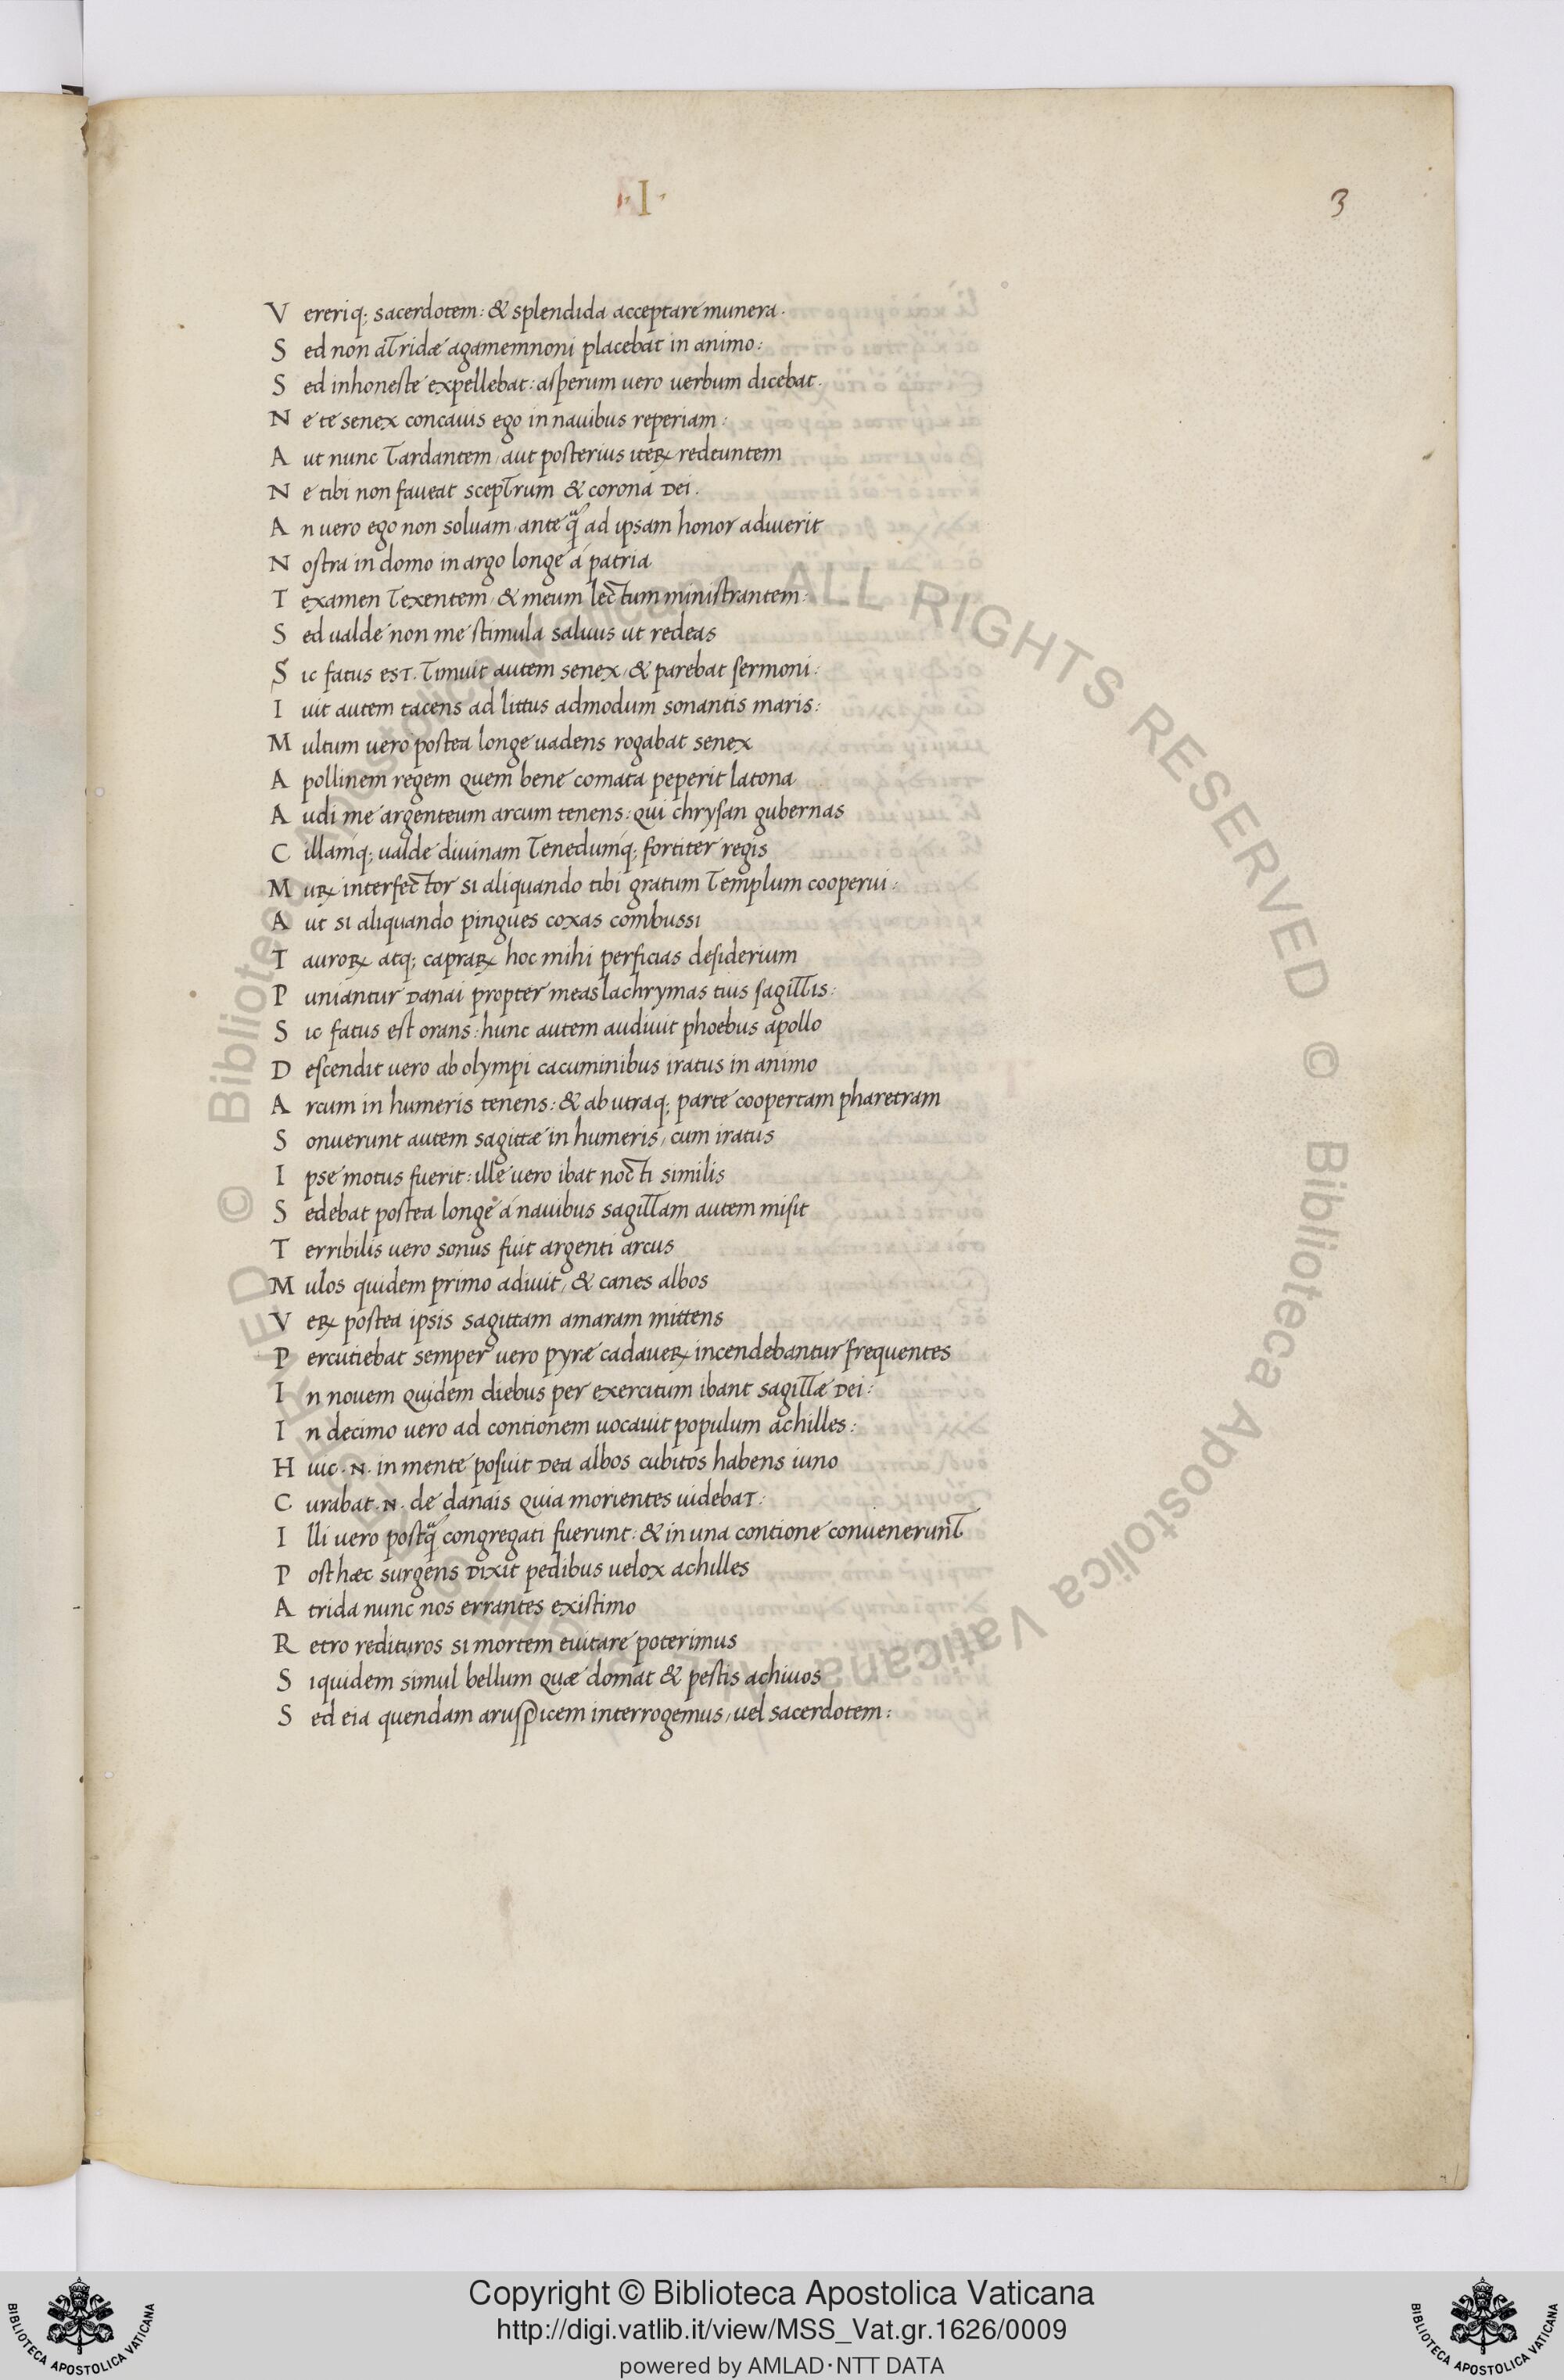 ·I·
3
V ereriq; sacerdotem: & splendida acceptare munera·
S ed non atridæ agamemnoni placebat in animo:
S ed inhoneste expellebat: asperum uero uerbum dicebat.
N e te senex concauis ego in nauibus reperiam:
A ut nunc tardantem, aut posterius iteꝝ redeuntem
N e tibi non faueat sceptrum & corona Dei.
A n uero ego non soluam, ante qͣ ad ipsam honor adiuerit
N ostra in domo in argo longe á patria
T examen texentem, & meum lectum ministrantem:
S ed ualde non me stimula saluus ut redeas
S ic fatus esT. Timuit autem senex, & parebat sermoni:
I uit autem tacens ad littus admodum sonantis maris:
M ultum uero postea longe uadens rogabat senex
A pollinem regem quem bene comata peperit latona
A udi me argenteum arcum tenens: qui chrysan gubernas
C illamq; ualde diuinam Tenedumq; fortiter regis
M uꝝ interfector si aliquando tibi gratum Templum cooperui:
A ut si aliquando pingues coxas combussi
T auroꝝ atq; capraꝝ hoc mihi perficias desiderium
P uniantur Danai propter meas lachrymas tuis sagittis:
S ic fatus est orans: hunc autem audiuit phoebus apollo
D escendit uero ab olympi cacuminibus iratus in animo
A rcum in humeris tenens: & ab utraq; parte coopertam pharetram
S onuerunt autem sagittæ in humeris, cum iratus
I pse motus fuerit: ille uero ibat nocti similis
S edebat postea longe á nauibus sagittam autem misit
T erribilis uero sonus fuit argenti arcus
M ulos quidem primo adiuit, & canes albos
V eꝝ postea ipsis sagittam amaram mittens
P ercutiebat semper uero pyræ cadaueꝝ incendebantur frequentes
I n nouem quidem diebus per exercitum ibant sagittæ Dei:
I n decimo uero ad contionem uocauit populum achilles:
H uic ·N· in mente posuit Dea albos cubitos habens iuno
C urabat ·N· de danais quia morientes uidebaT:
I lli uero postqͣ congregati fuerunt: & in una contione conuenerunt
P ost hæc surgens Dixit pedibus uelox achilles
A trida nunc nos errantes existimo
R etro redituros si mortem euitare poterimus
S iquidem simul bellum quæ domat & pestis achiuos
S ed eia quendam aruspicem interrogemus, uel sacerdotem:
© Biblioteca Apostolica Vaticana ALL RIGHTS RESERVED © Biblioteca Apostolica Vaticana ALL RIGHTS RESERVED
Copyright © Biblioteca Apostolica Vaticana
http://digi.vatlib.it/view/MSS_Vat.gr.1626/0009
powered by AMLAD·NTT DATA
BIBLIOTECA APOSTOLICA VATICANA
BIBLIOTECA APOSTOLICA VATICANA